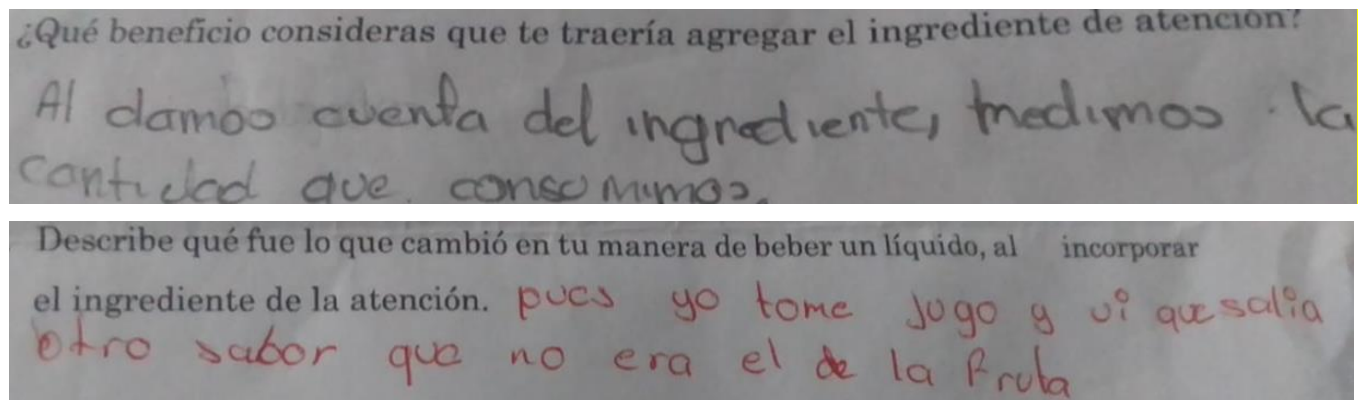 ¿Qué beneficio consideras que te traería agregar el ingrediente de atención?
Al damos cuenta del ingrediente, medimos la
cantidad que consumimos.
Describe qué fue lo que cambió en tu manera de beber un líquido, al incorporar
el ingrediente de la atención. pues yo tome Jugo y vi que salia
otro sabor que no era el de la fruta